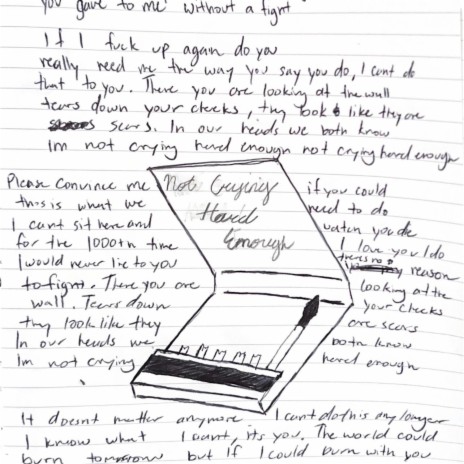 you gave to me without a fight
If I fuck up again do you
really need me the way you say you do, I cant do
that to you. There you are looking at the wall
tears down your cheeks, they look like they are
scars. In our heads we both know
Im not crying hard enough not crying hard enough
Please convince me
this is what we
I cant sit here and
for the 1000th time
I would never lie to you
to fight. There you are
wall. Tears down
they look like they
In our heads we
Im not crying
Not Crying
Hard
Enough
if you could
need to do
watch you die
I love you I do
theres no
reason
looking at the
your cheeks
are scars
both know
hard enough
It doesnt matter anymore I cant do this any longer
I know what I want, its you. The world could
burn tomorrow but if I could burn with you